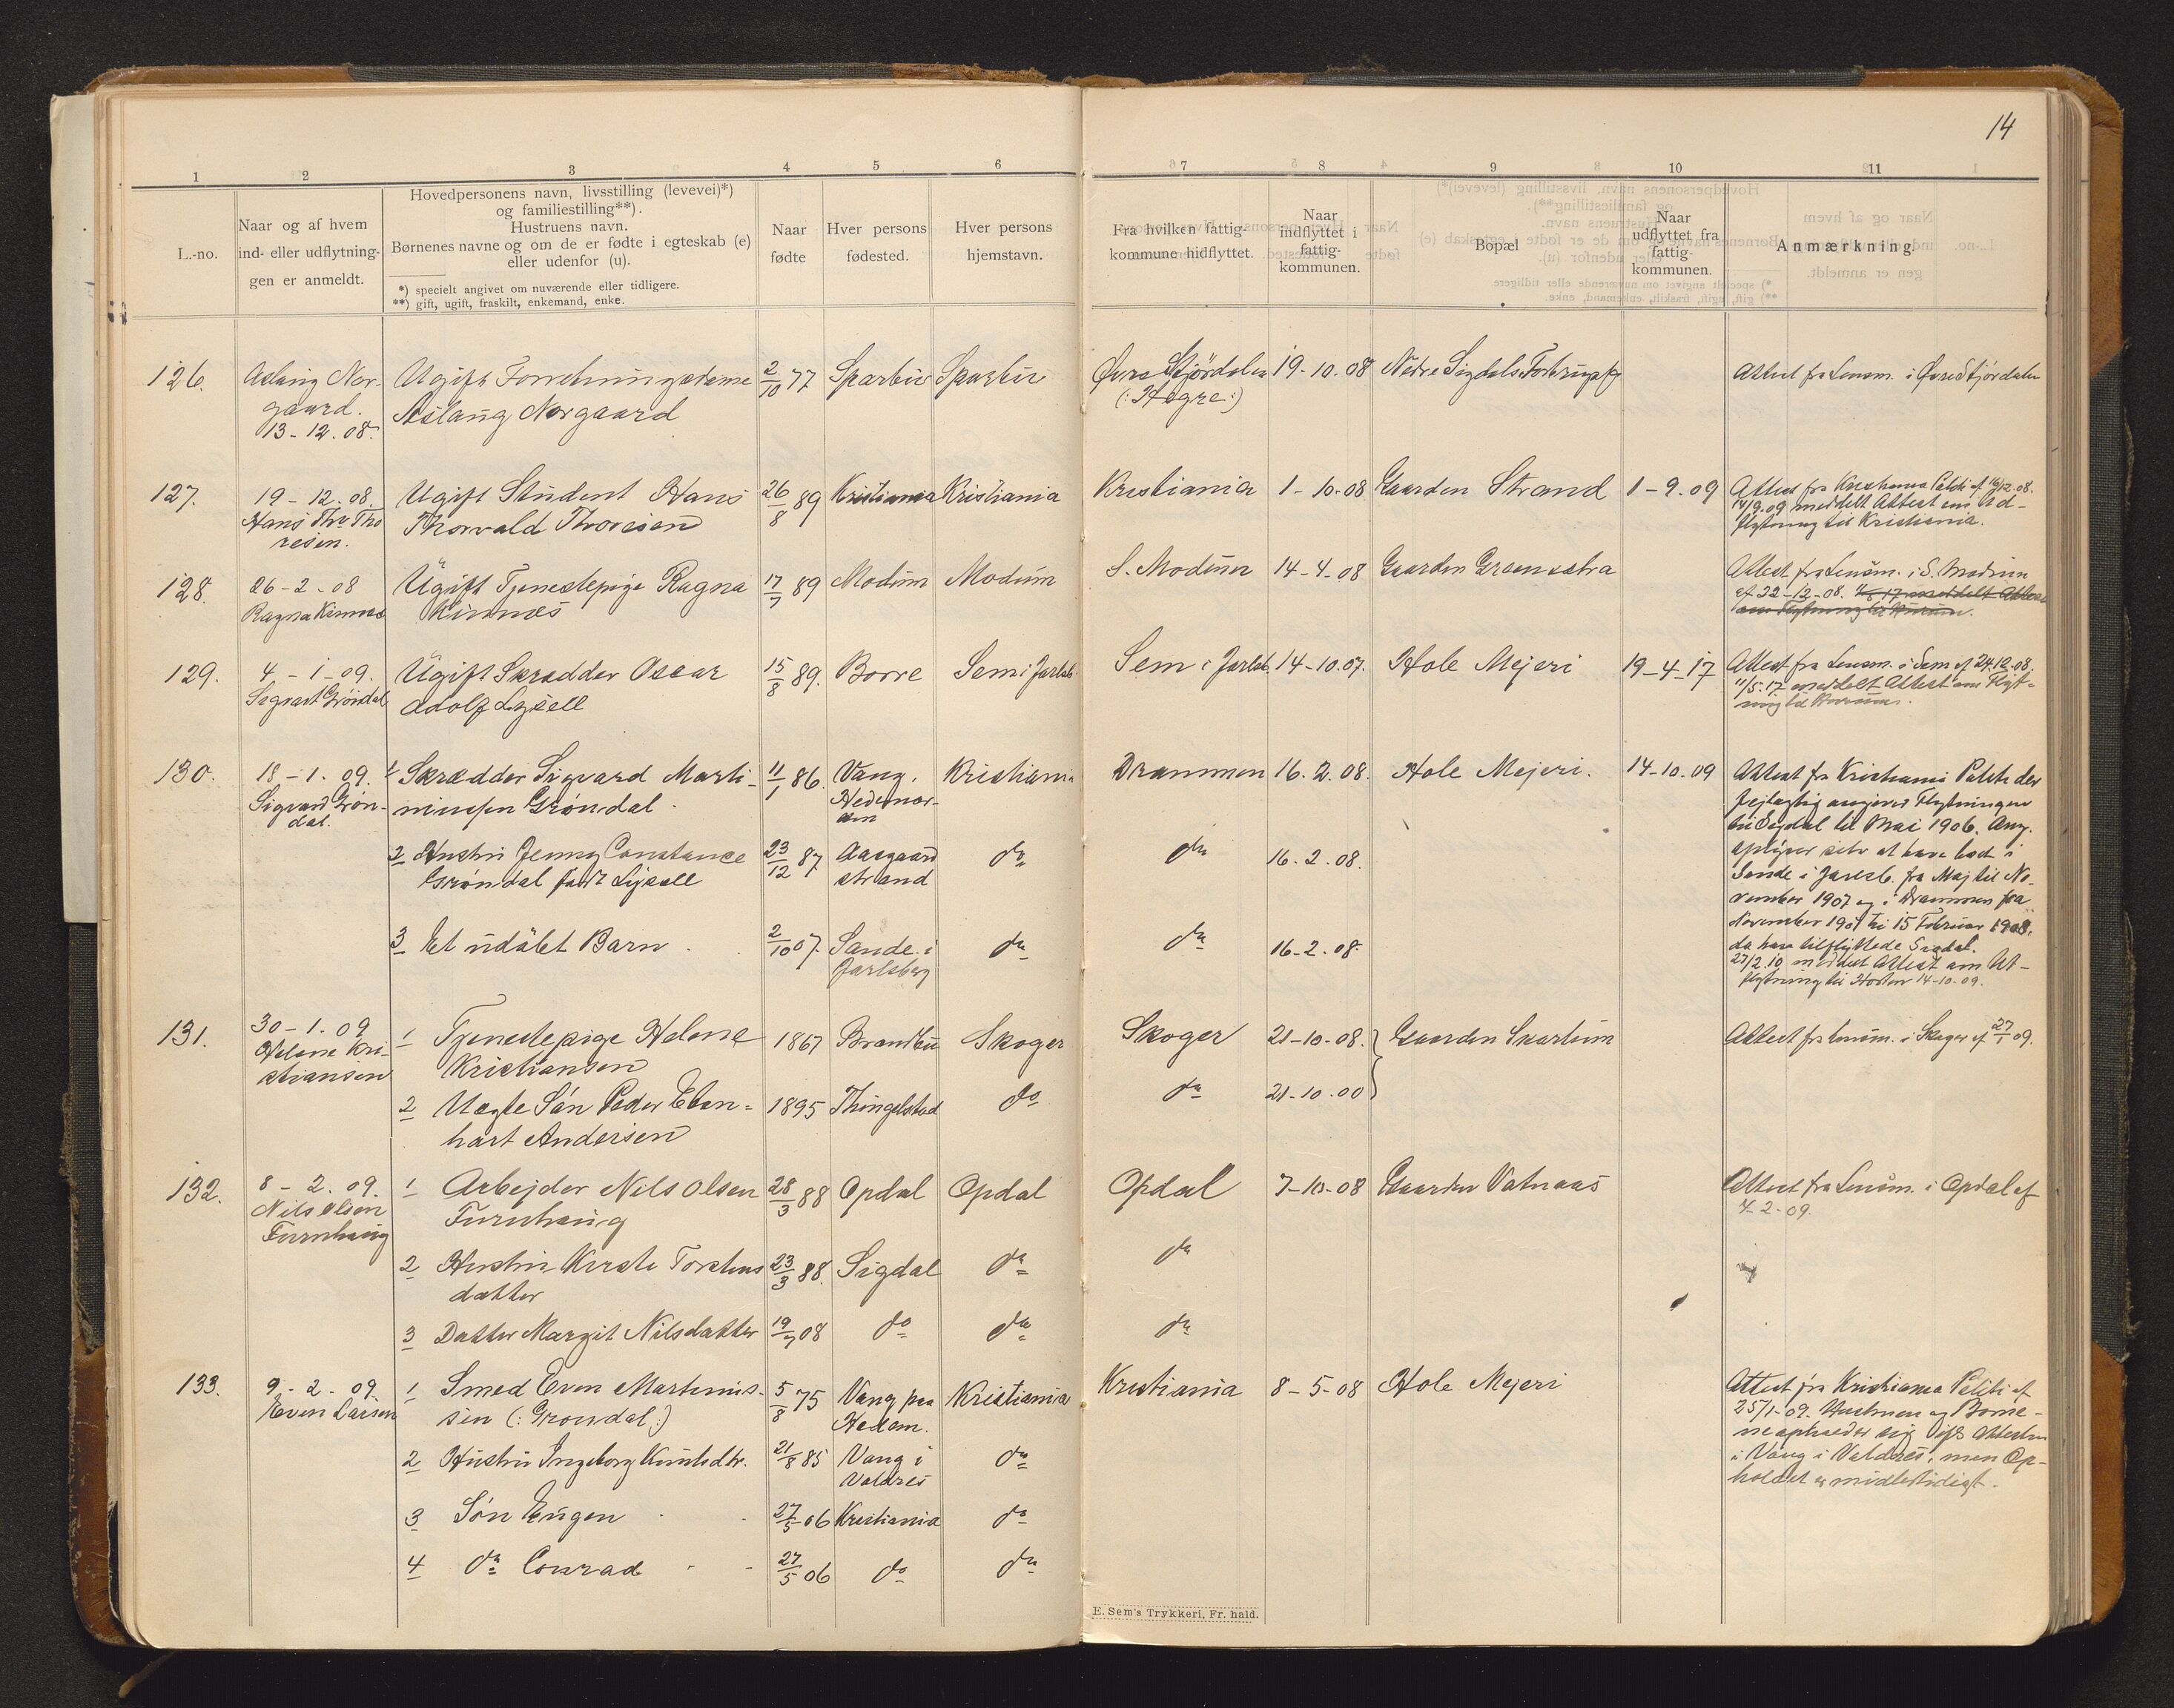 14
1 2 3 4 5 6 7 8 9 10 11
L.-no.
Naar og af hvem
ind- eller udflytnin-
gen er anmeldt.
Hovedpersonens navn, livsstilling (levevei)*)
og familiestilling**).
Hustruens navn.
Børnenes navne og om de er fødte i egteskab (e)
eller udenfor (u).
*) specielt angivet om nuværende eller tidligere.
**) gift, ugift, fraskilt, enkemand, enke.
Naar
fødte
Hver persons
fødested.
Hver persons
hjemstavn.
Fra hvilken fattig-
kommune hidflyttet.
Naar
indflyttet i
fattig-
kommunen.
Bopæl
Naar
udflyttet fra
fattig-
kommunen.
Anmærkning.
126.
Aslaug Nor-
gaard.
13-12.08.
Ugift Forretningsdame
Aslaug Norgaard
2/10 77
Sparbu
Sparbu
Øvre Stjördalen
(: Hegre :)
19-10.08
Nedre Sigdals
Attest fra Lensm. i Øvre Stjördalen
127.
19-12.08.
Hans Th. Tho
resen.
Ugift Student Hans
Thorvald Thoresen
26/8 89
Kristiania
Kristiania
Kristiania
1-10-08
Gaarden Strand
1-9.09
Attest fra Kristiania Politi af 16/12.08.
14/9.09 meddelt Attest om Ud-
flytning til Kristiania.
128.
26-2-08
Ragna Kinnes
Ugift Tjenestepige Ragna
Kinnes
17/7 89
Modum
Modum
S. Modum
14-4-08
Gaarden
Attest fra Lensm. i S. Modum
af 22-12-08. 17 meddelt Attest
om Flytning til
129.
4-1-09.
Sigvart Gröndal
Ugift Skrædder Oscar
Adolf Lysell
15/8 89.
Borre
Sem i Jarlsb.
Sem i Jarlsb.
14-10.07.
Hole Mejeri
19-4-17
Attest fra Lensm. i Sem af 24.12.08.
11/5.17 meddelt Attest om Flyt-
ning til
130.
18-1.09.
Sigvard Grön-
dal.
1 Skrædder Sigvard Marti-
niussen Gröndal.
11/1 86.
Vang,
Hedemar-
ken
Kristiania
Drammen
16.2.08.
Hole Mejeri.
14-10.09
Attest fra Kristiania Politi der
fejlagtig angiver Flytningen
til Sigdal til Mai 1906. Ang.
oplyser selv at have boet i
Sande i Jarlsb. fra Maj til No-
vember 1907 og i Drammen fra
November 1907 til 15 Februar 1908,
da han tilflyttede Sigdal.
27/2.10 meddelt Attest om Ut-
flytning til Horten 14-10-09.
2 Hustru Jenny Constance
Gröndal født Lysell
23/12 87
Aasgaard
strand
do
do
16.2.08.
3 Et udöbt Barn
2/10 07.
Sande i
Jarlsberg
do
do
16-2.08.
131.
30-1.09
Helene Kri-
stiansen
1 Tjenestepige Helene
Kristiansen
1867
Brandbu
Skoger
Skoger
21-10-08.
Gaarden Skartum
Attest fra Lensm. i Skoger af 27/1 09.
2 Uægte Sön Peder Eben-
hart Andersen
1895
Thingelstad
do
do
21-10.00
132.
8-2.09.
Nils Olsen
Furuhaug
1 Arbejder Nils Olsen
Furuhaug
28/3 88
Opdal
Opdal
Opdal
7-10-08
Gaarden Vatnaas
Attest fra Lensm. i Opdal af
4-2-09.
2 Hustru Kirsti Torstens
datter
23/3 88.
Sigdal
do
do
3 Datter Margit Nilsdatter
19/7 08
do
do
do
133.
9-2-09.
Even Larsen
1 Smed Even Martinus-
sen (: Gröndal :)
5/8 75
Vang paa
Hedem.
Kristiania
Kristiania
8-5-08
Hole Mejeri
Attest fra Kristiania Politi af
25/1-09. Hustruen og Börne-
ne opholder sig ifl. Attesten
i Vang i Valdres, men Op-
holdet er midlertidigt.
2 Hustru Ingeborg Knutsdtr.
21/8 85
Vang i
Valdres
do
3 Sön Eugen
27/5 06
Kristiania
do
4 do Conrad
27/5 06
do
do
E. Sem's Trykkeri, Fr. hald.